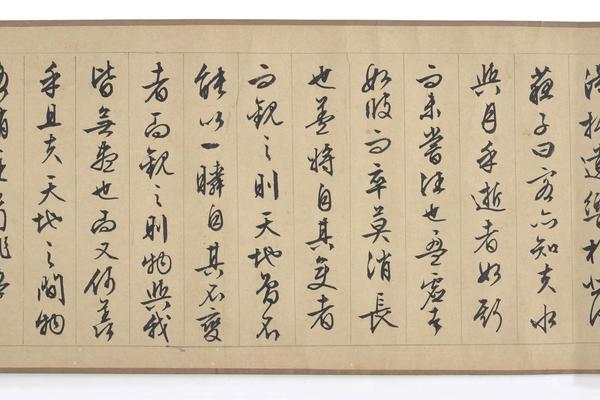 托遺響於悲
蘇子曰客亦知夫水
與月乎逝者如斯
而未嘗往也盈虛者
如彼而卒莫消長
也蓋將自其變者
而觀之則天地曾不
能以一瞬自其不變
者而觀之則物與我
皆無盡也而又何羨
乎且夫天地之間物